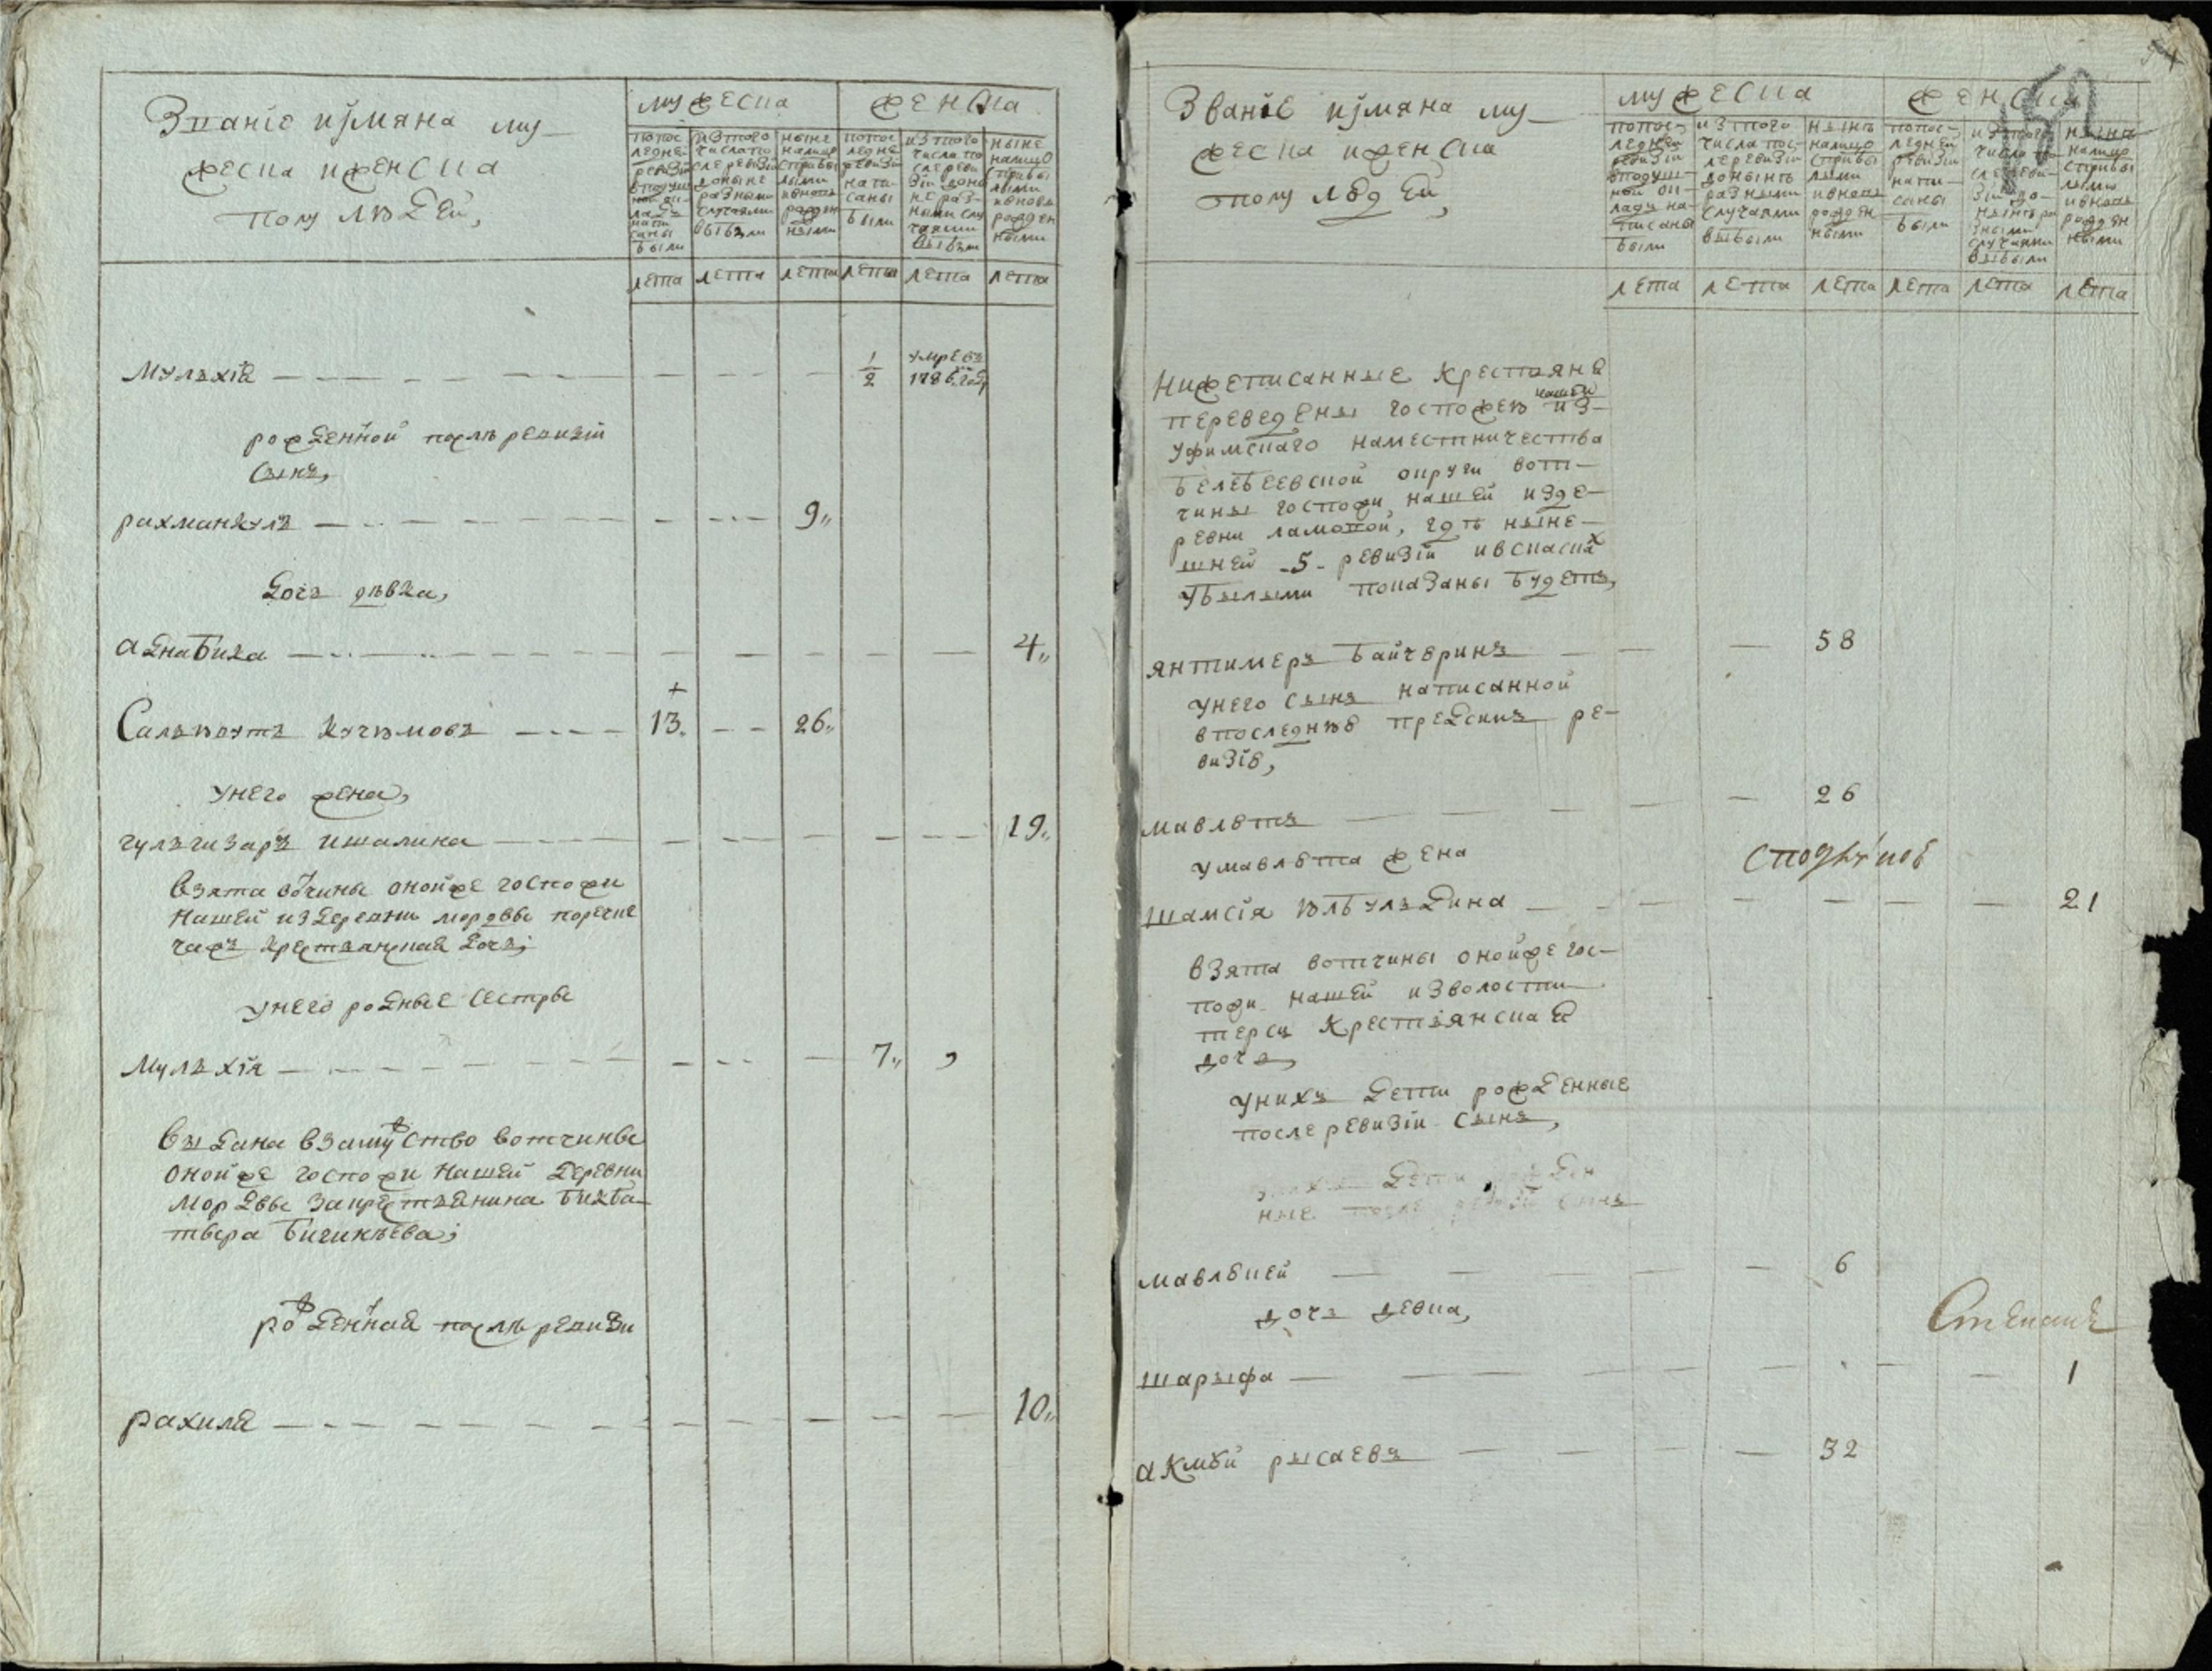 Званіе и имяна му-
жеска и женска
полу людей,
мужеска
женска
по пос
ледней
ревизіи
в подуш
ной ок-
ладъ
напи
саны
были
из того
числа по
сле ревизіи
до ныне
разными
случаями
выбыли
ныне
налицо
с прибы
лыми
и вновь
рожден
ными
по пос
ледне
ревизіи
напи-
саны
были
из того
числа по
сле реви
зіи доны
не раз-
ными слу
чаями
выбыли
ныне
налицо
с прибы
лыми
и вновь
рожден
ными
лета лета лета лета лета лета
Мульхія 1/2 умре въ
1786 году
рожденной после ревизіи
сынъ,
рахманкулъ 9,,
дочь девка,
аднабика 4,,
+
Сальяутъ Кучюмовъ 13. 26,,
у него жена,
гульгизаръ ишалина 19,,
взята вотчины оной же госпожи
нашей из деревни мордвы
крестьянская дочь;
у него родные сестры
Мульхія 7,,
выдана в замужство вотчины
оной же госпожи нашей деревни
Мордвы за крестьянина
рожденная после ревизіи
рахиля 10,,
Званіе и имяна му-
жеска и женска
полу людей,
мужеска
женска
по пос-
ледней
ревизіи
в подуш-
ной ок-
ладъ на-
писаны
были
из того
числа пос-
ле ревизіи
до нынъ
разными
случаями
выбыли
нынъ
налицо
с прибы
лыми
и вновь
рожден
ными
по пос-
ледней
ревизіи
напи-
саны
были
из того
числа по-
сле реви-
зіи до-
нынъ ра
зными
случаями
выбыли
нынъ
налицо
с прибы
лыми
и вновь
рожден
ными
лета лета лета лета лета лета
Нижеписанные крестьяне
переведены госпожею нашей из-
уфимскаго наместничества
белебеевской округи вот-
чины госпожи нашей из де-
ревни ламовой, где ныне-
шней -5- ревизіи и в сказках
убылыми показаны будетъ,
янтимеръ байчюринъ 58
у него сынъ написанной
в последнюю пред симъ ре-
визію,
мавлютъ 26
у мавлюта жена
шамсія юлбульдина 21
взята вотчины оной же гос-
пожи нашей из волости
терси крестьянская
дочь,
у нихъ дети рожденные
после ревизіи сынъ,
мавлюкей 6
дочь девка,
Степанъ
шарыфа 1
акмюй рысаевъ 32